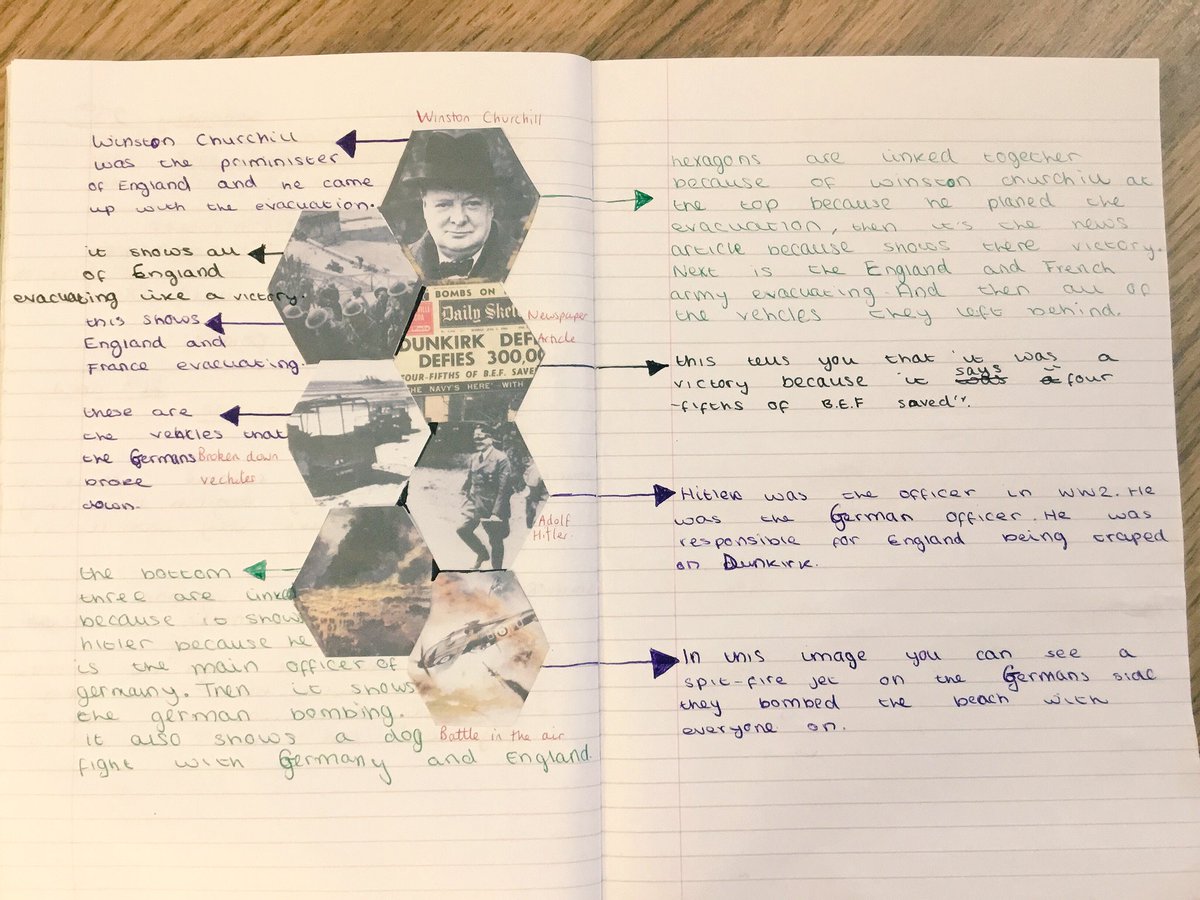 Winston Churchill
Winston Churchill
was the priminister
of England and he came
up with the evacuation.
it shows all
of England
evacuating like a victory.
this shows
England and
France evacuating.
these are
the vehicles that
the Germans
broke
down.
Broken down
vechiles
the bottom
three are linked
because it shows
hitler because he
is the main officer of
germany. Then it shows
the german bombing.
it also shows a dog
fight with Germany and England.
BOMBS ON
Daily Sket
DUNKIRK DEF
DEFIES 300,00
FOUR-FIFTHS OF B.E.F. SAVE
THE NAVY'S HERE' WITH
Newspaper
Article
Adolf
Hitler.
Battle in the air
hexagons are linked together
because of winston churchill at
the top because he planed the
evacuation, then it's the news
article because shows there victory.
Next is the England and French
army evacuating. And then all of
the vehcles they left behind.
this tells you that it was a
victory because it says "four
-fifths of B.E.F saved".
Hitler was the officer in WW2. He
was the German officer. He was
responsible for England being traped
on Dunkirk.
In this image you can see a
spit-fire jet on the Germans side
they bombed the beach with
everyone on.